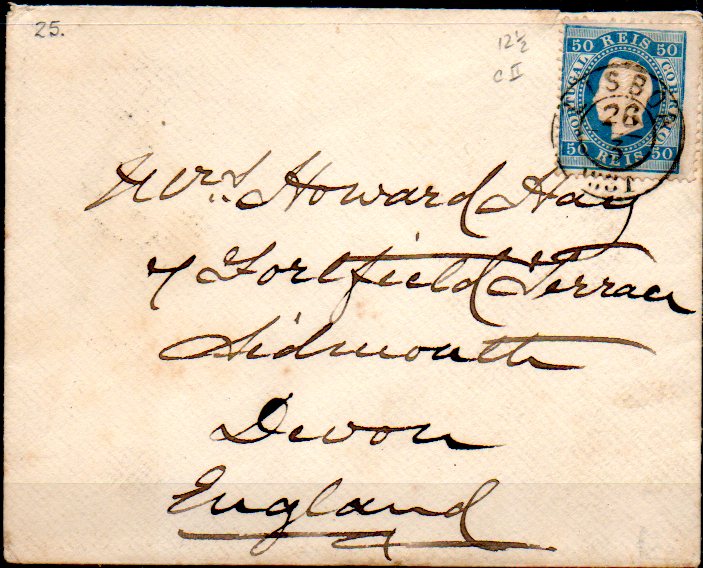 25.
12½
C II
50 REIS 50
PORTUGAL CORREIO
LISBOA
26
3
1881
50 REIS 50
Mrs. Howard Hay
7 Fortfield Terrace
Sidmouth
Devon
England